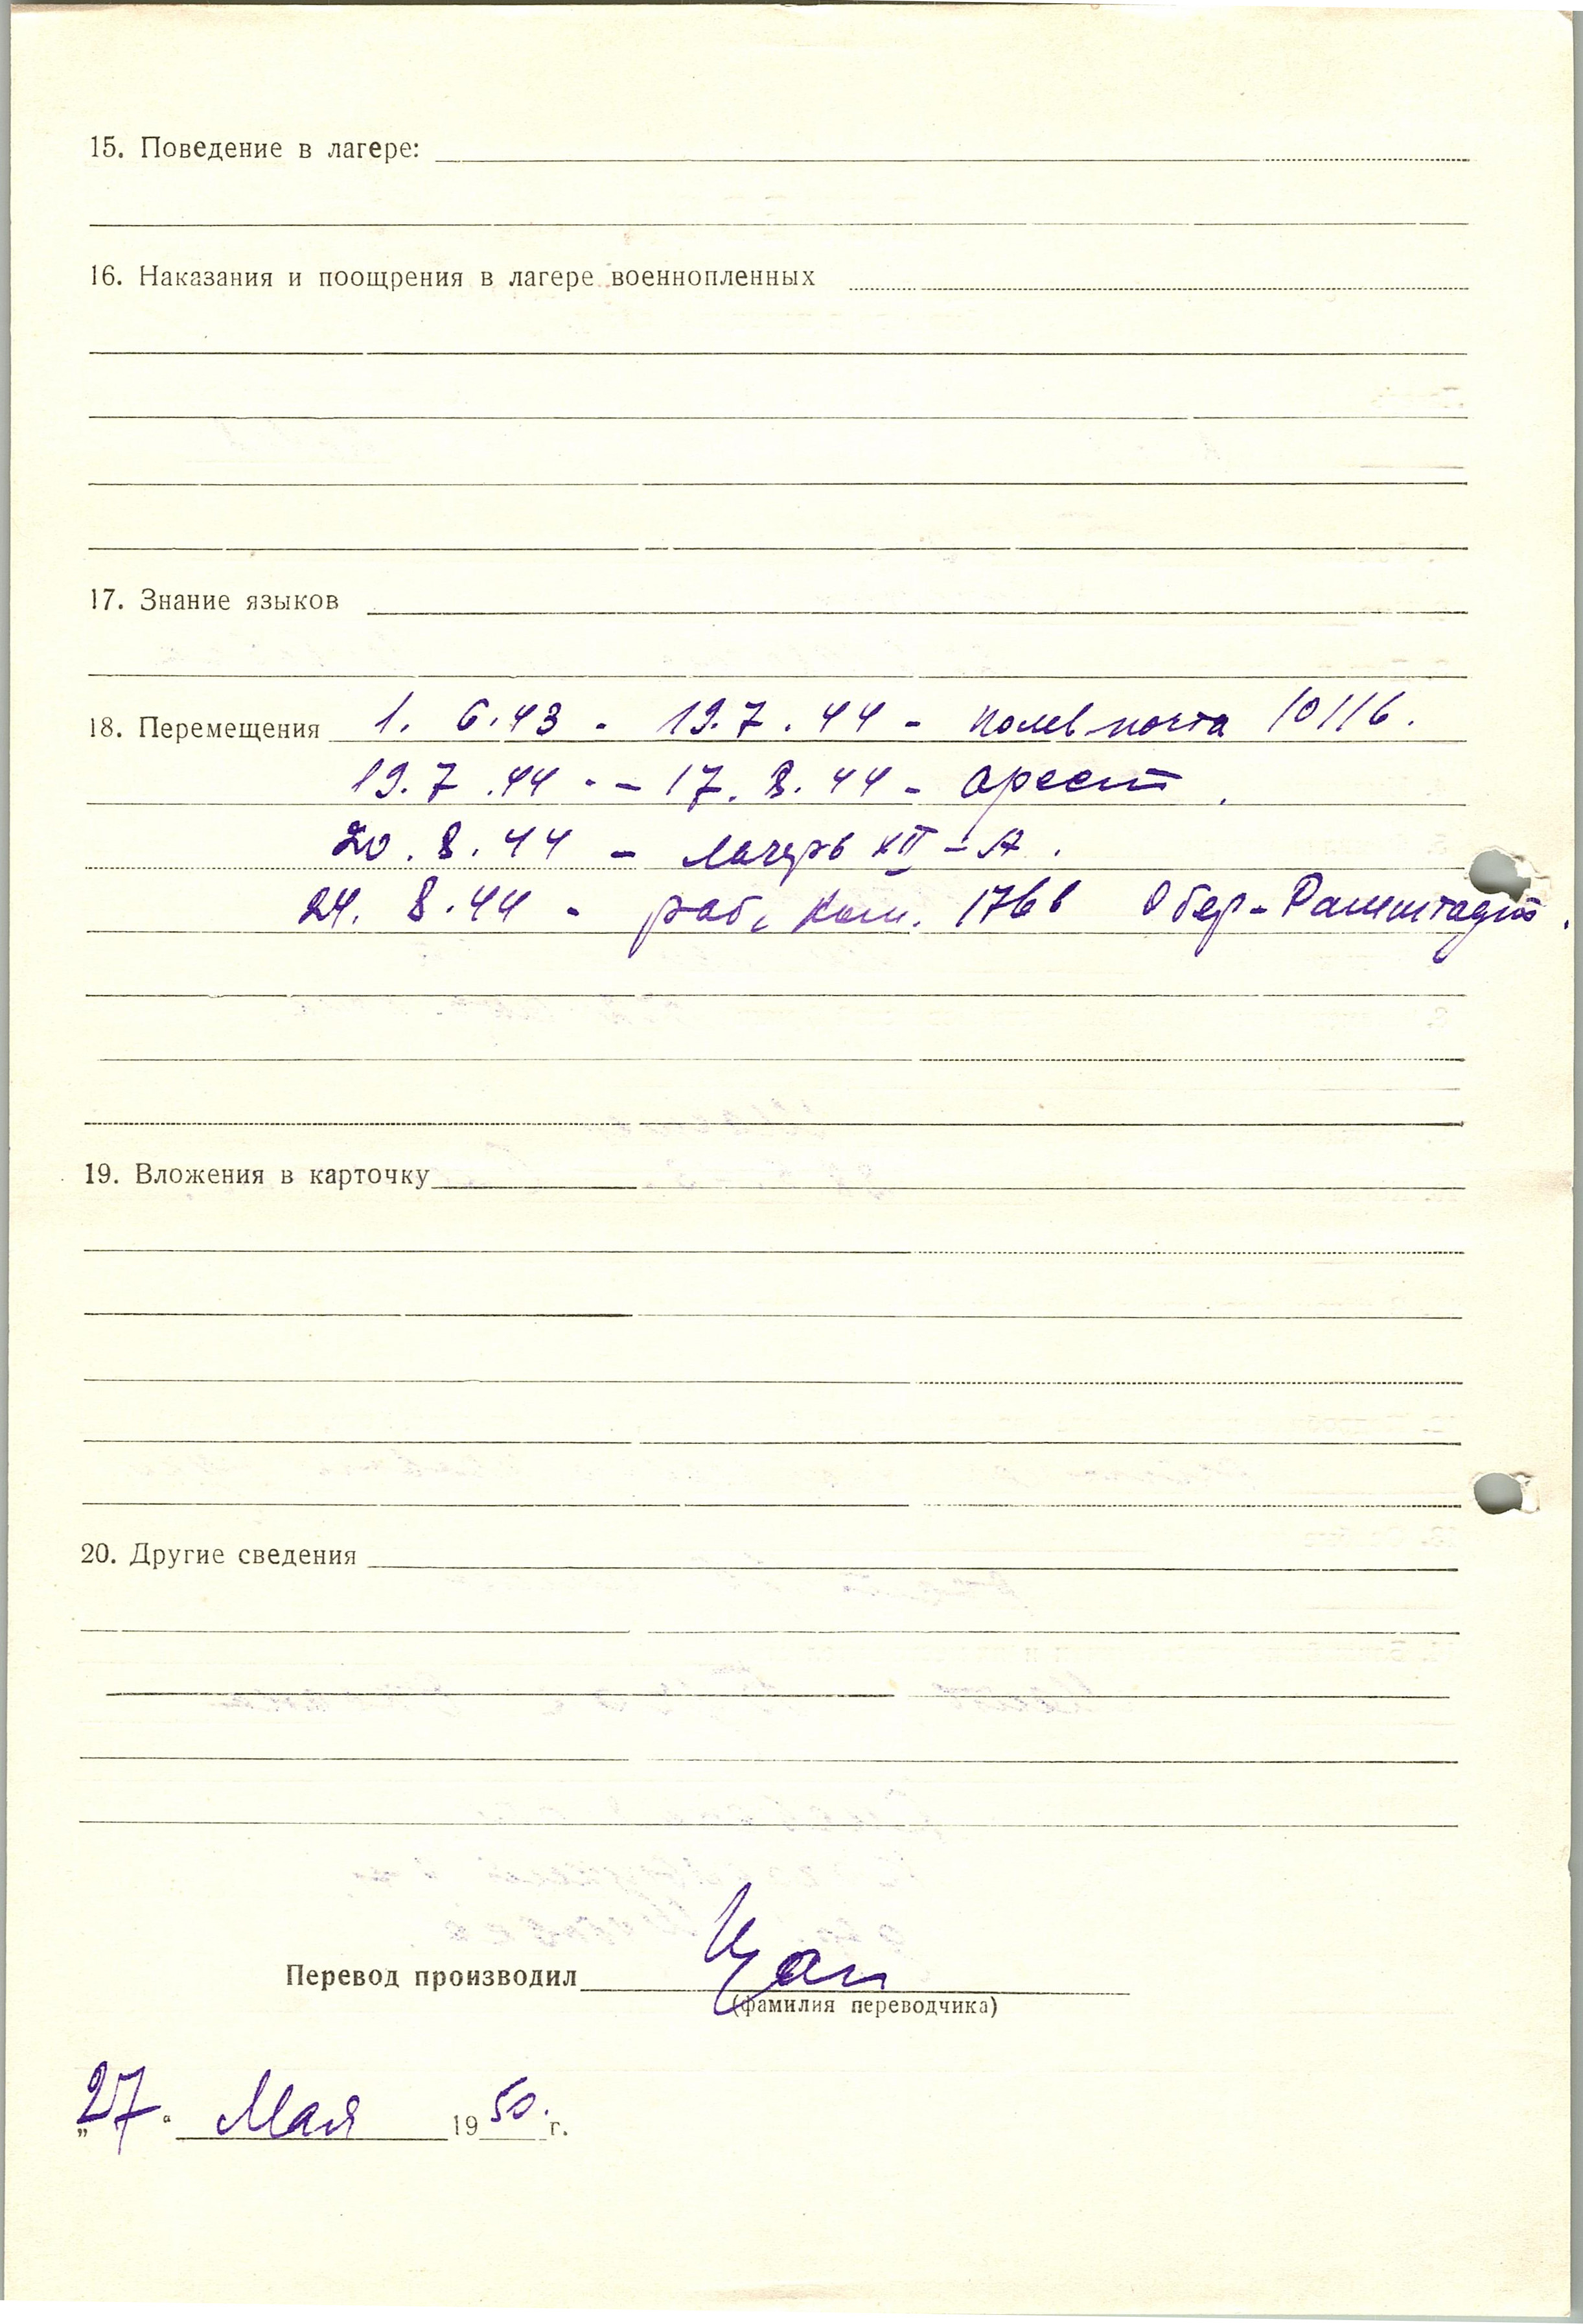 15. Поведение в лагере:
16. Наказания и поощрения в лагере военнопленных
17. Знание языков
18. Перемещения 1. 6.43 - 19.7.44 - полев почта 10116.
19.7.44 - 17.8.44 - арест.
20.8.44 - лагерь XII - А.
24. 8.44 - раб. ком. 1766 Обер-Рамштадт.
19. Вложения в карточку
20. Другие сведения
Перевод производил Цан
(фамилия переводчика)
„27“ Мая 1950 г.